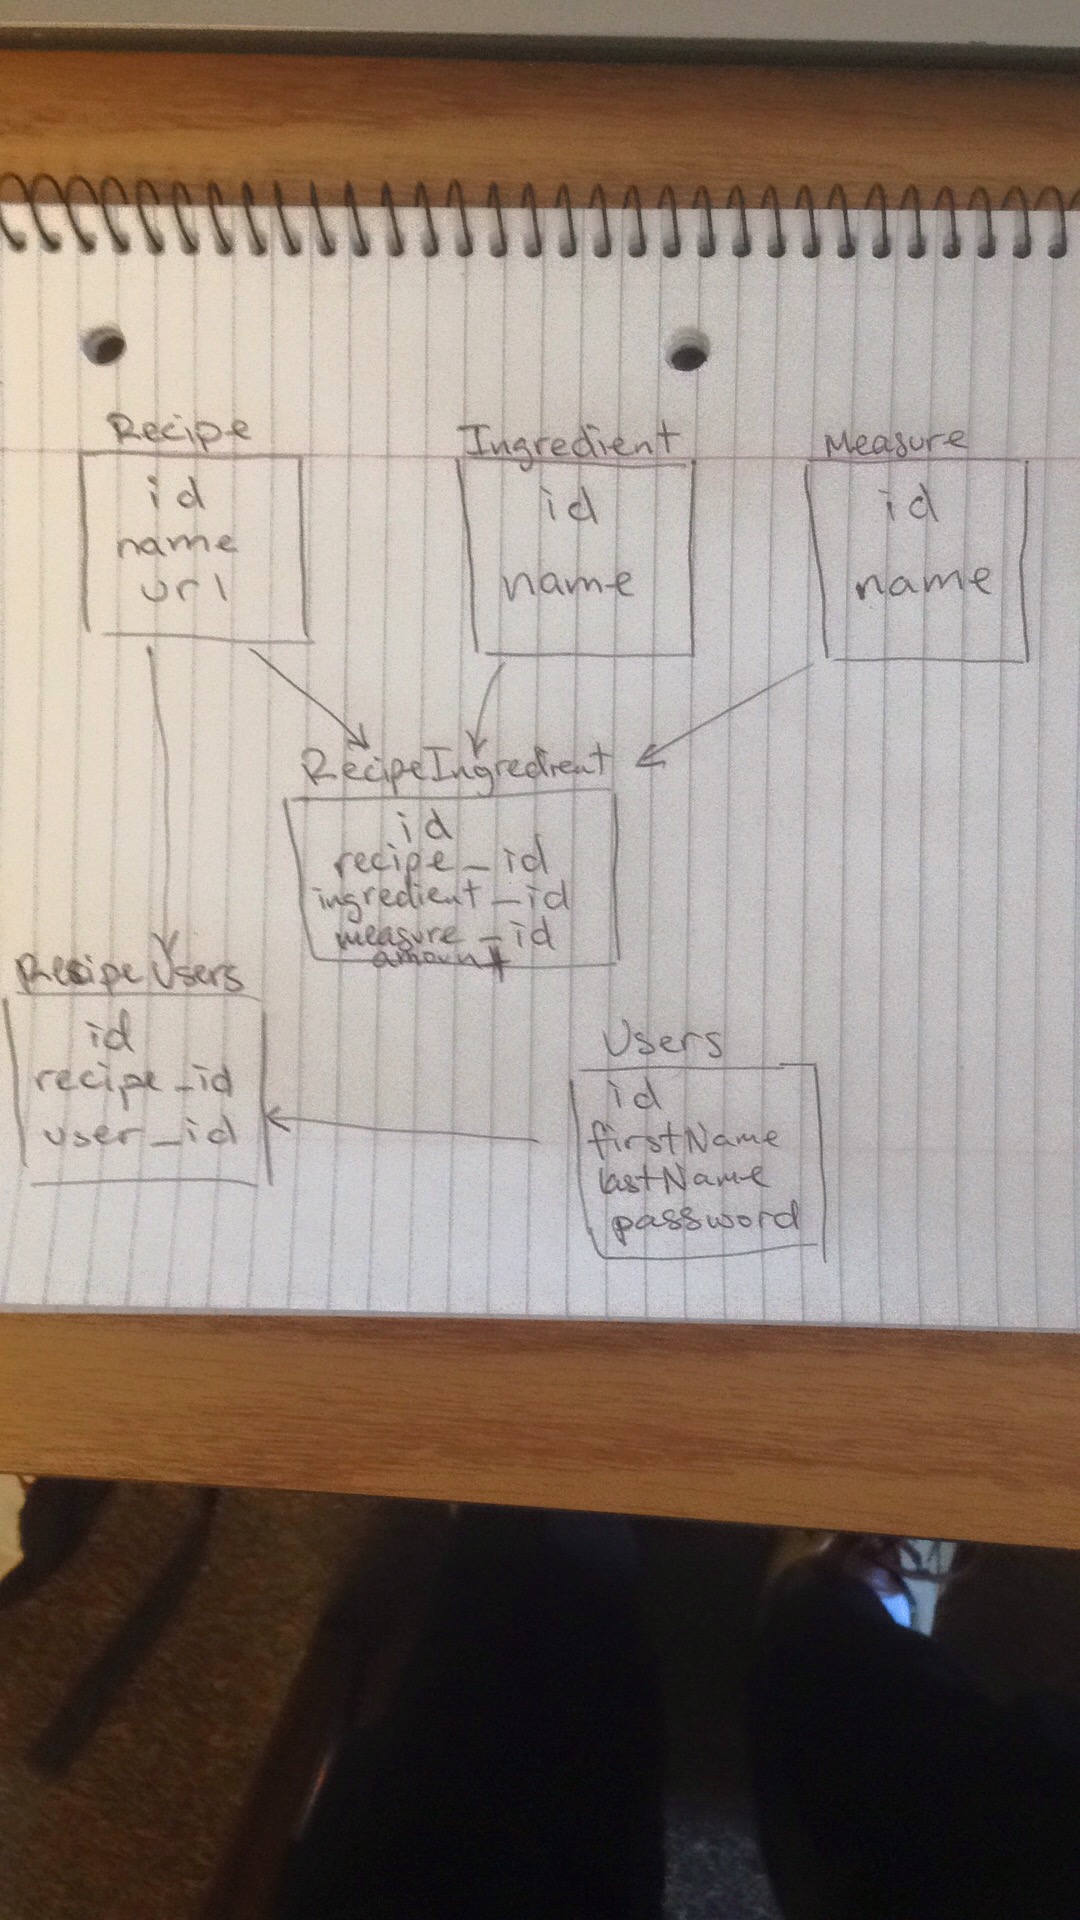 Recipe
id
name
url
Ingredient
id
name
Measure
id
name
RecipeIngredient
id
recipe_id
ingredient_id
measure_id
amount
RecipeUsers
id
recipe_id
user_id
Users
id
firstName
lastName
password